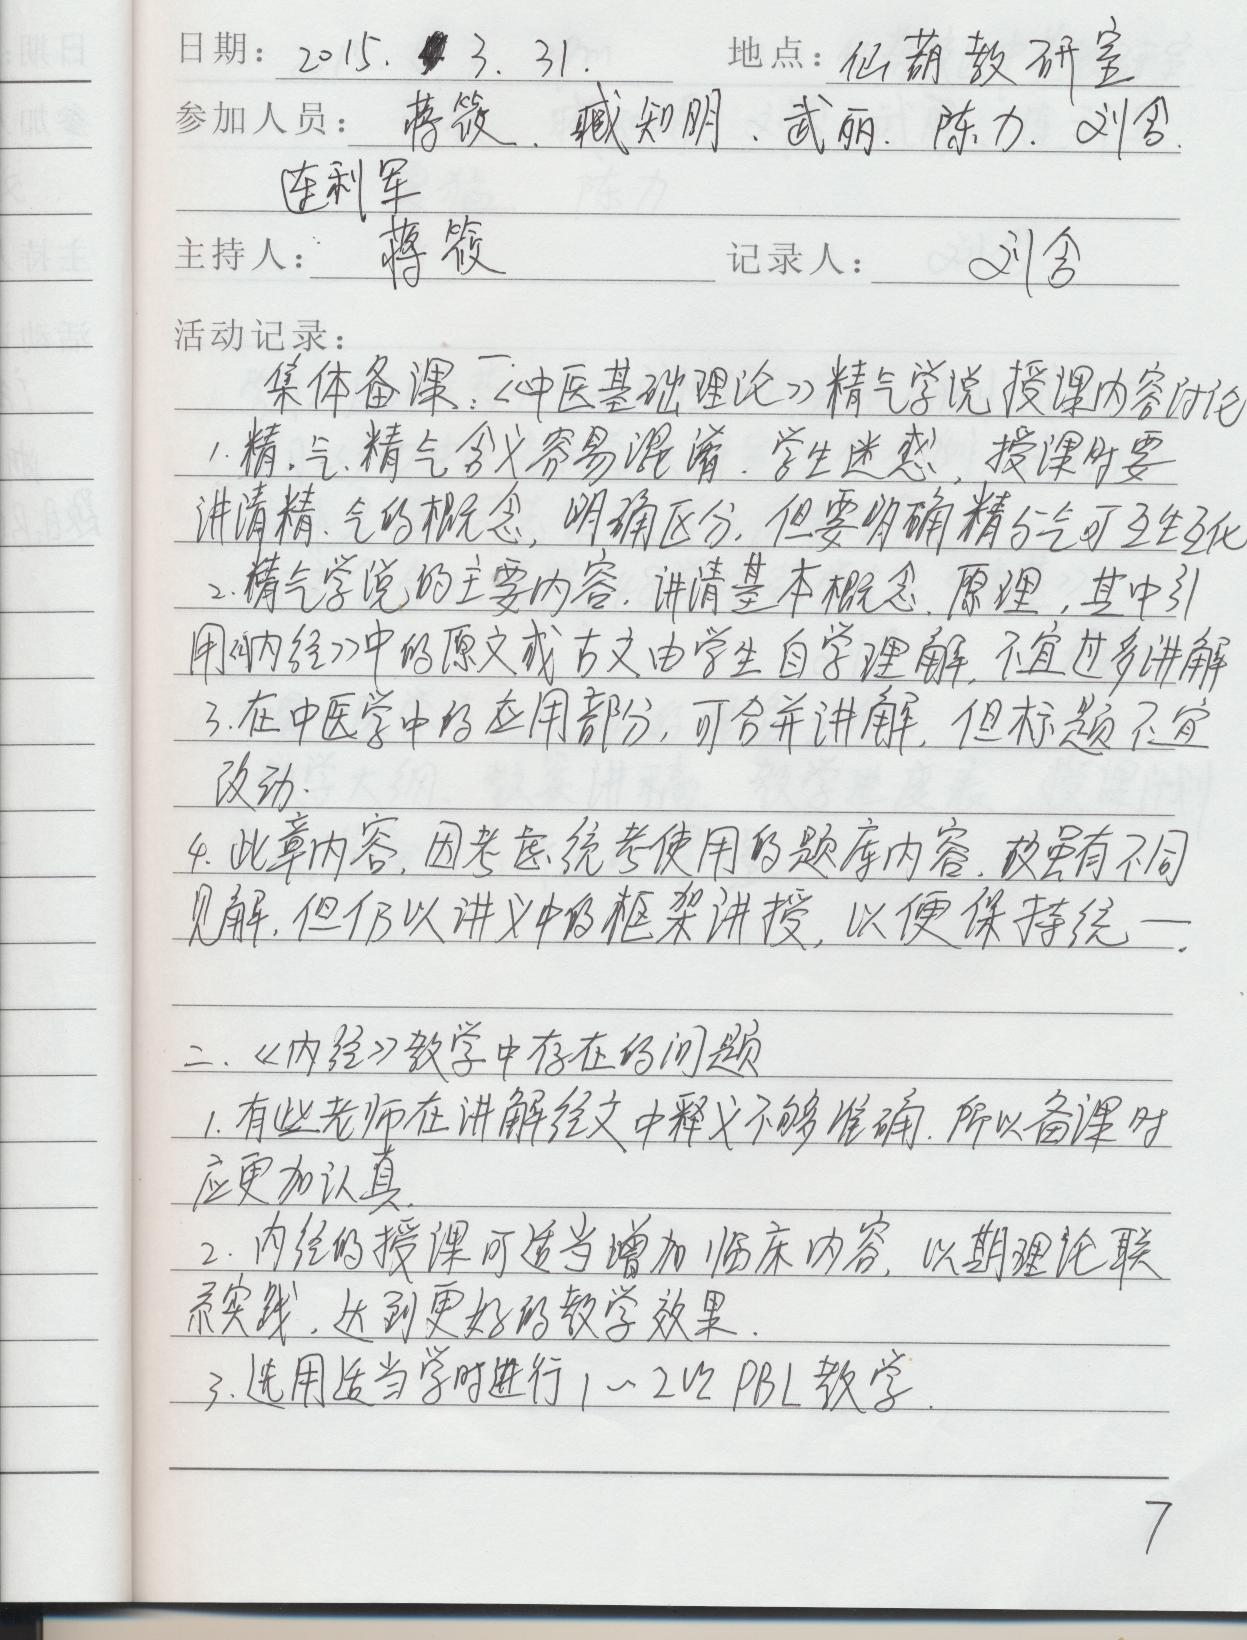 日期: 2015. 3. 31. 地点: 仙葫教研室
参加人员: 蒋筱、臧知明、武丽、陈力、刘含、
连利军
主持人: 蒋筱 记录人: 刘含
活动记录:
集体备课:一.《中医基础理论》精气学说授课内容讨论
1.精、气、精气含义容易混淆、学生迷惑,授课时要
讲清精、气的概念,明确区分,但要明确精与气可互生互化
2.精气学说的主要内容,讲清基本概念、原理,其中引
用《内经》中的原文或古文由学生自学理解,不宜过多讲解
3.在中医学中的应用部分,可合并讲解,但标题不宜
改动.
4.此章内容,因考虑统考使用的题库内容,故虽有不同
见解,但仍以讲义中的框架讲授,以便保持统一.
二.《内经》教学中存在的问题
1.有些老师在讲解经文中释义不够准确,所以备课时
应更加认真.
2.内经的授课可适当增加临床内容,以期理论联
系实践,达到更好的教学效果.
3.选用适当学时进行1~2次PBL教学.
7